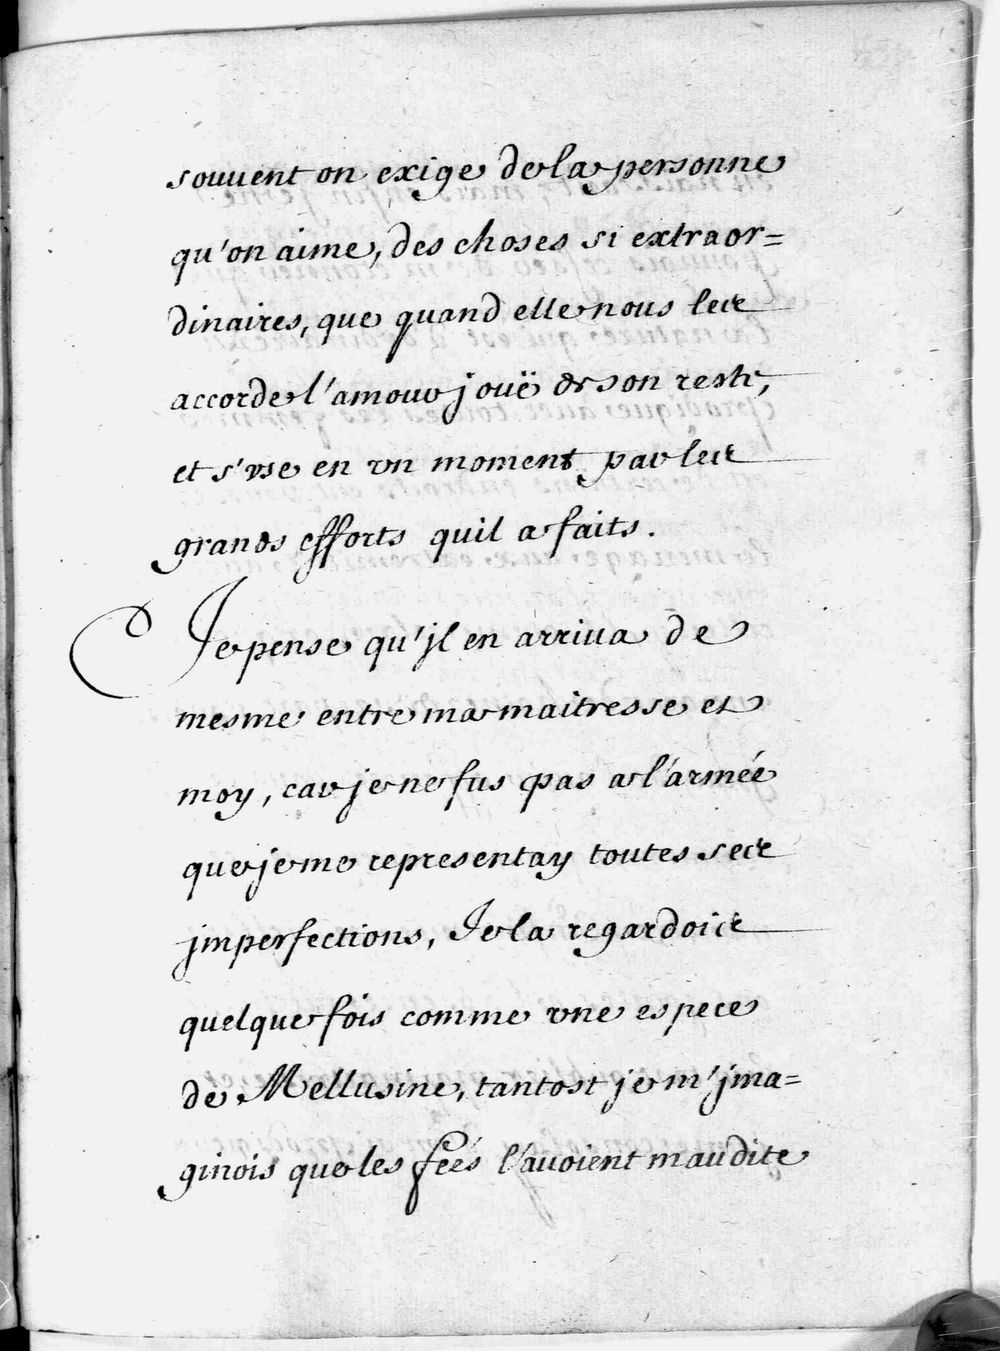 souuent on exige de la personne
qu'on aime, des choses si extraor=
dinaires, que quand elle nous les
accorde l'amour jouë de son reste,
et s'vse en vn moment par les
grands efforts quil a faits.
Je pense qu'jl en arriua de
mesme entre ma maitresse et
moy, car je ne fus pas a l'armée
que je me representay toutes ses
jmperfections, Je la regardois
quelque fois comme vne espece
de Mellusine, tantost je m'jma=
ginois que les feés l'auoient maudite